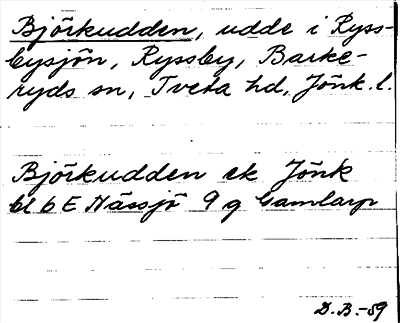 Björkudden, udde i Ryss-
bysjön, Ryssby, Barke-
ryds sn, Tveta hd, Jönk. l.
Björkudden ek Jönk
bl 6 E Nässjö 9 g Gamlarp
D. B. -59